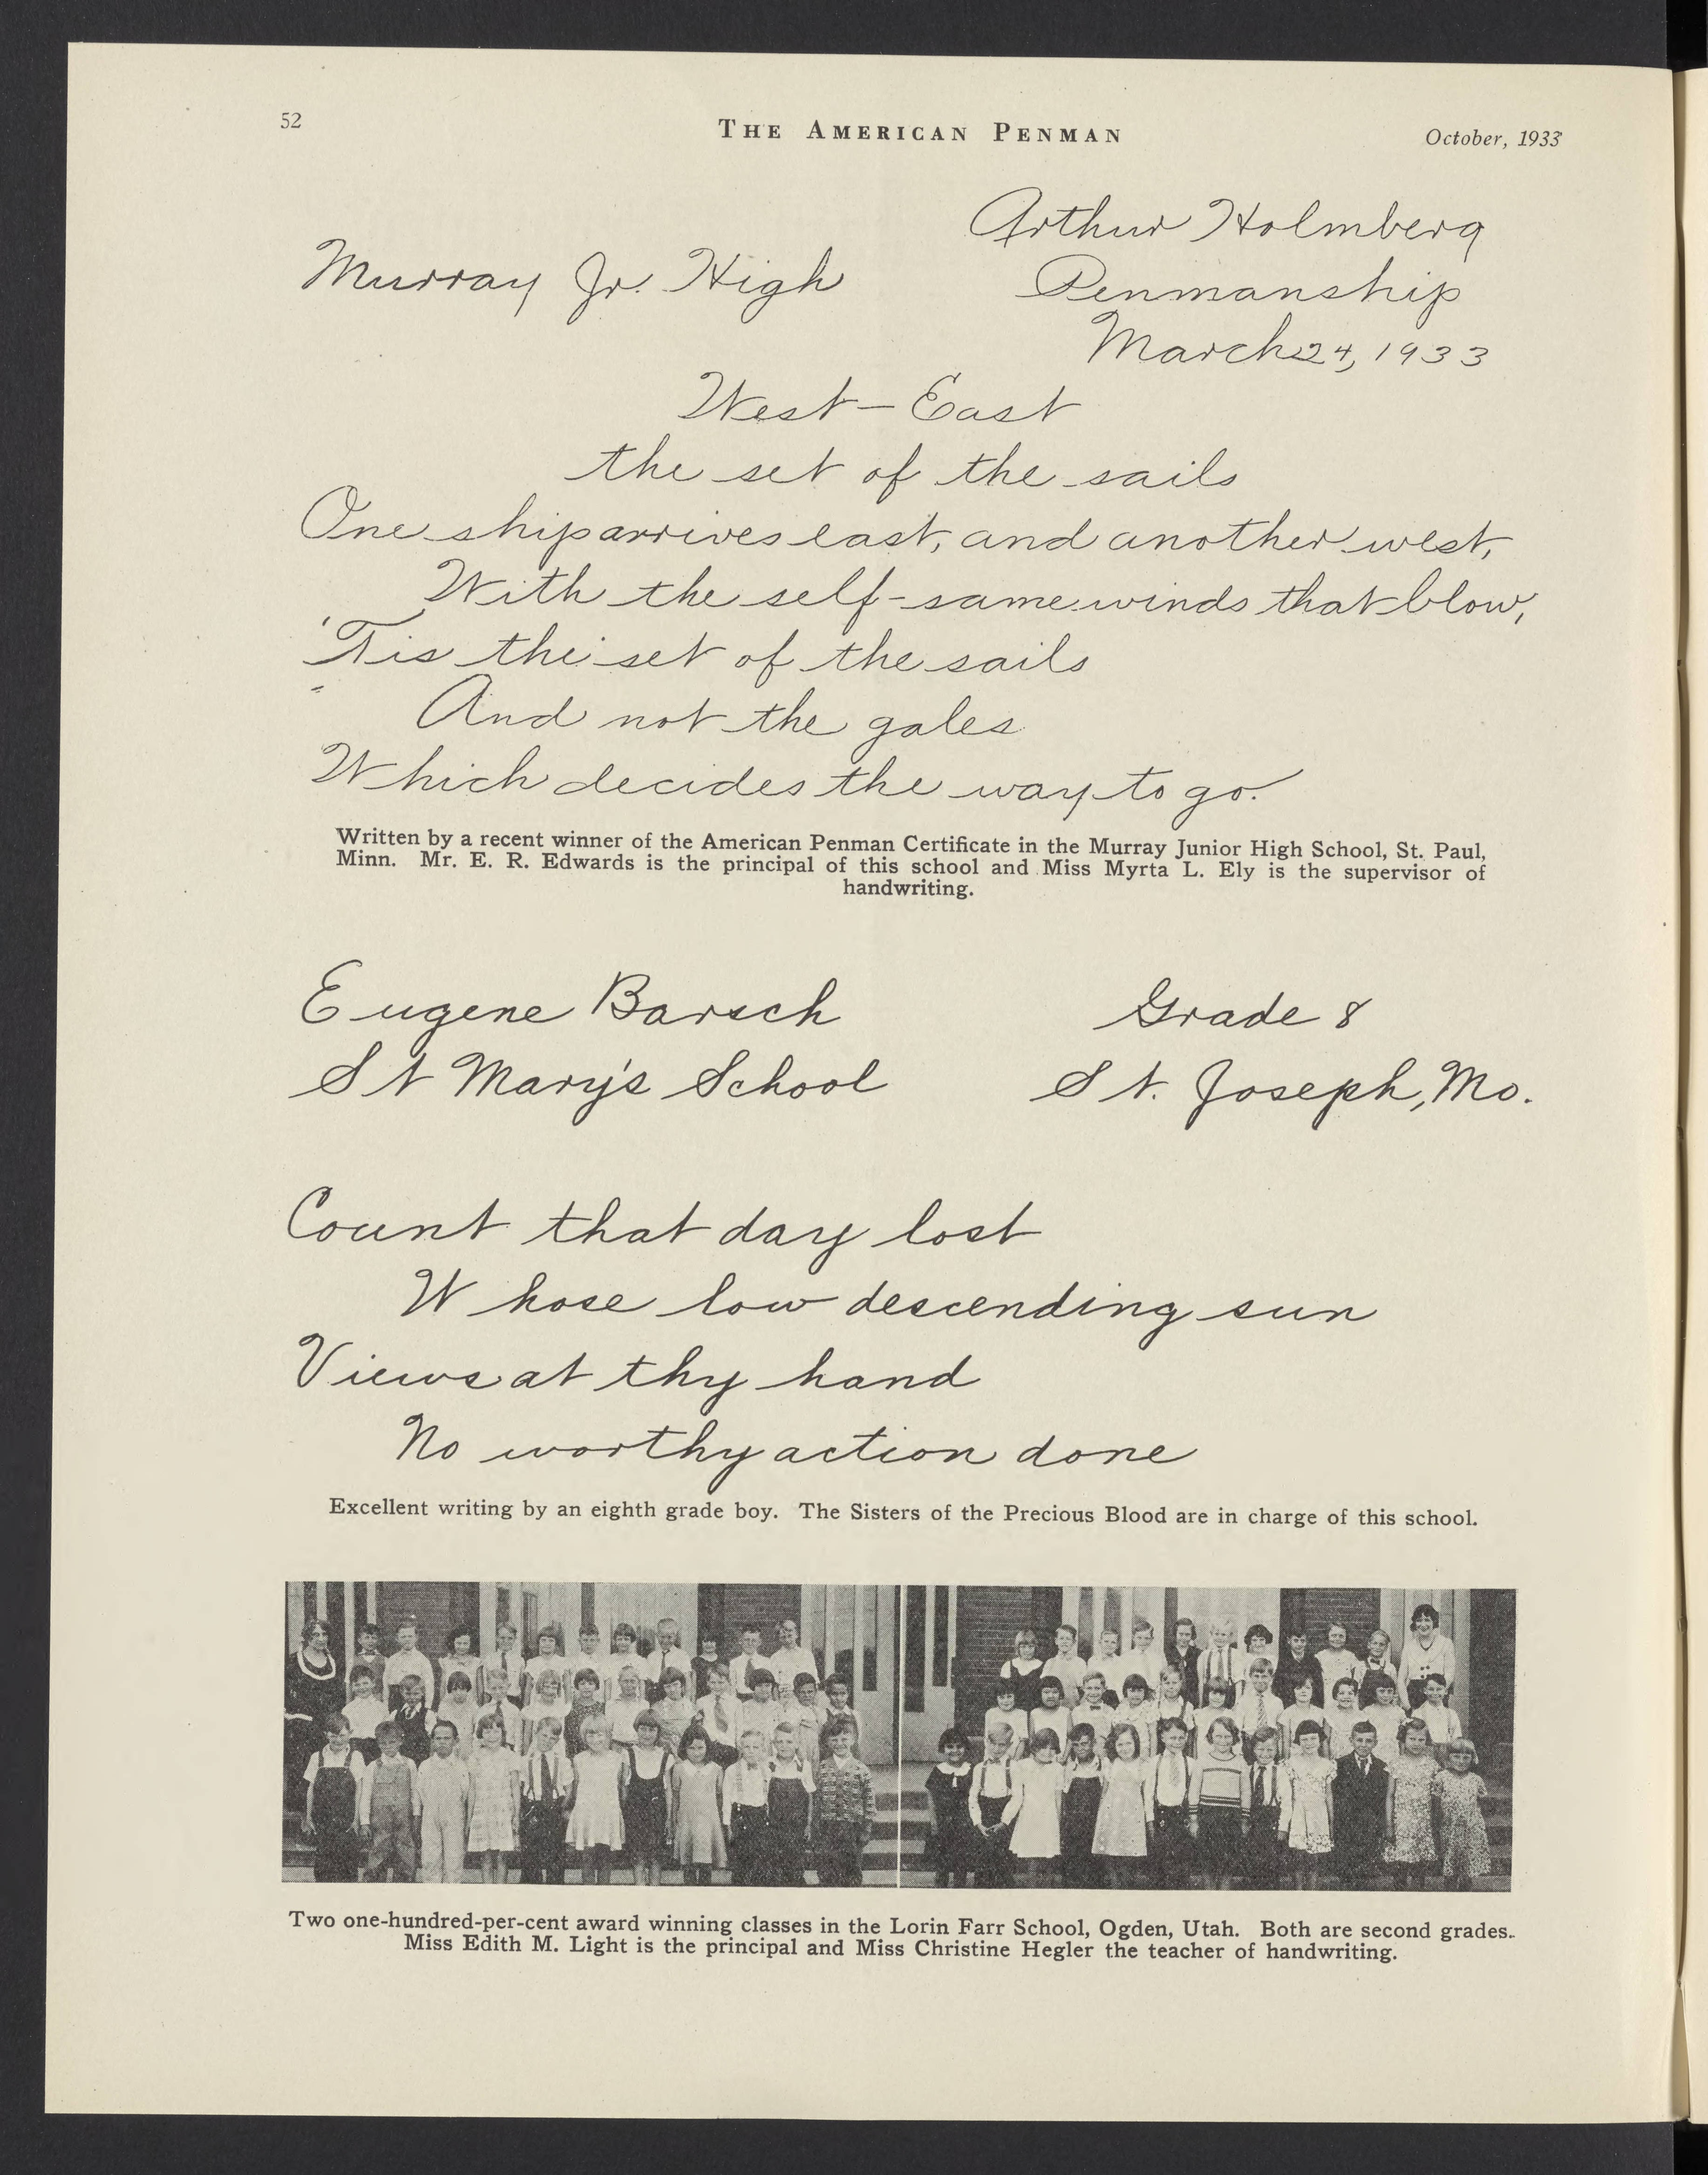 52
THE AMERICAN PENMAN
October, 1933
Arthur Holmberg
Murray Jr. High
Penmanship
March 24, 1933
West - East
the set of the sails
One ship arrives east, and another west,
With the self-same winds that blow,
'Tis the set of the sails
And not the gales
Which decides the way to go.
Written by a recent winner of the American Penman Certificate in the Murray Junior High School, St. Paul,
Minn. Mr. E. R. Edwards is the principal of this school and Miss Myrta L. Ely is the supervisor of
handwriting.
Eugene Barsch
Grade 8
St Mary's School
St. Joseph, Mo.
Count that day lost
Whose low descending sun
Views at thy hand
No worthy action done
Excellent writing by an eighth grade boy. The Sisters of the Precious Blood are in charge of this school.
Two one-hundred-per-cent award winning classes in the Lorin Farr School, Ogden, Utah. Both are second grades.
Miss Edith M. Light is the principal and Miss Christine Hegler the teacher of handwriting.